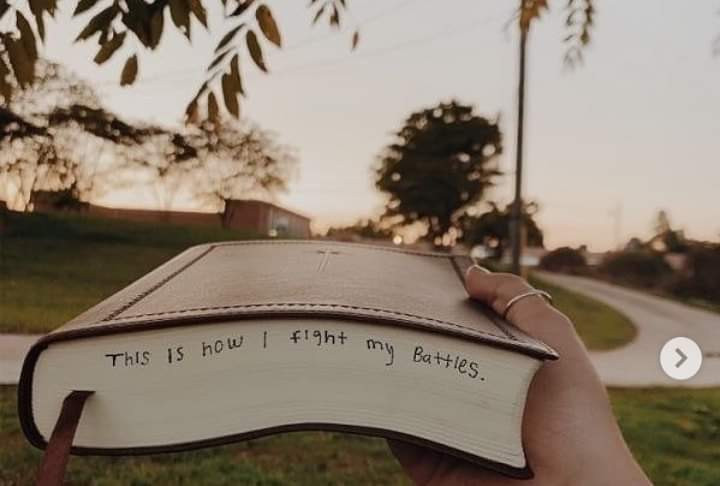 This is how I fight my Battles.